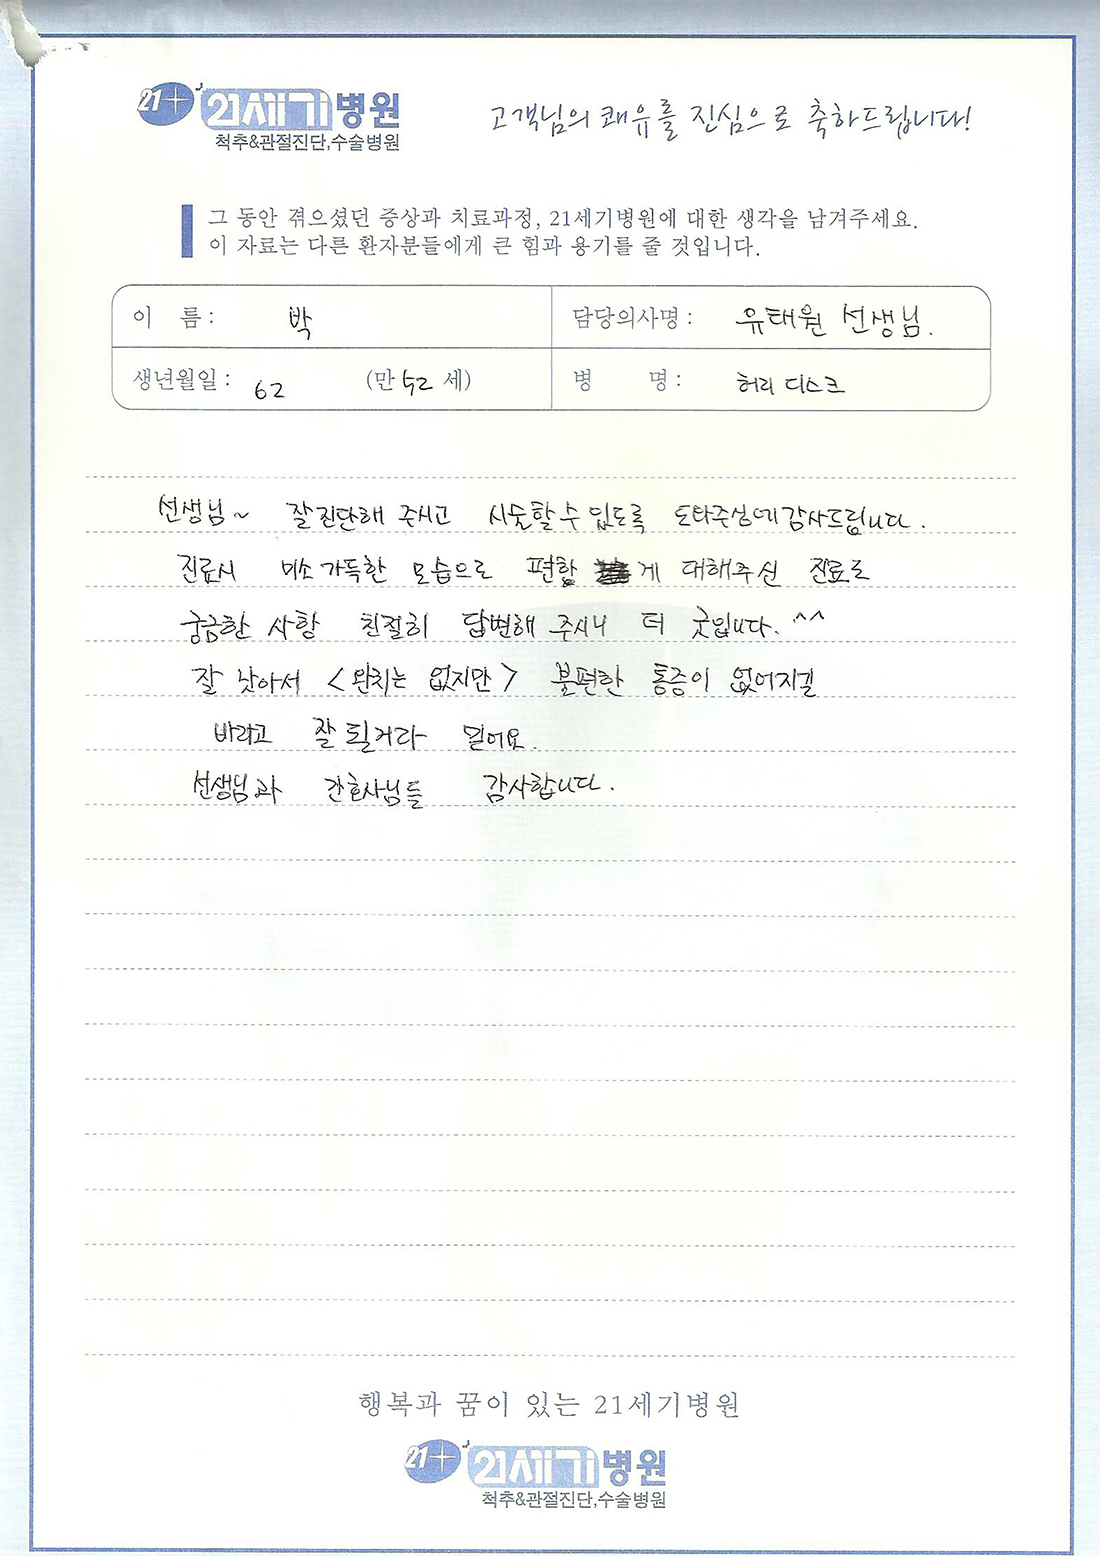 21+ 21세기병원
척추&관절진단,수술병원
고객님의 쾌유를 진심으로 축하드립니다!
그 동안 겪으셨던 증상과 치료과정, 21세기병원에 대한 생각을 남겨주세요.
이 자료는 다른 환자분들에게 큰 힘과 용기를 줄 것입니다.
이 름 : 박
담당의사명 : 유태원 선생님.
생년월일 : 62 (만 52 세)
병 명 : 허리 디스크
선생님~ 잘 진단해 주시고 시술할 수 있도록 도와주심에 감사드립니다.
진료시 미소 가득한 모습으로 편함 게 대해주신 진료로
궁금한 사항 친절히 답변해 주시니 더 굿입니다. ^^
잘 낫아서 <완치는 없지만> 불편한 통증이 없어지길
바라고 잘 될거라 믿어요.
선생님과 간호사님들 감사합니다.
행복과 꿈이 있는 21세기병원
21+ 21세기병원
척추&관절진단,수술병원